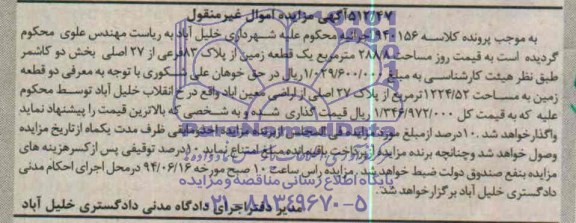 ۵۱۲/۴۷ آگهی مزایده اموال غیرمنقول
به موجب پرونده کلاسه ۹۴۰۱۵۶ اجرائیه محکوم علیه شهرداری خلیل آباد به ریاست مهندس علوی محکوم
گردیده است به قیمت روز مساحت ۲۸۸/۸ مترمربع یک قطعه زمین از پلاک ۸۳ فرعی از ۲۷ اصلی بخش دو کاشمر
طبق نظر هیئت کارشناسی به مبلغ ۱/۰۲۹/۶۰۰/۰۰۰ ریال در حق خوهان علی شکوری با توجه به معرفی دو قطعه
زمین به مساحت ۱۲۲۴/۵۲ مترمربع از پلاک ۲۷ اصلی از اراضی معین اباد واقع در خ انقلاب خلیل آباد توسط محکوم
علیه که به قیمت کل ۱/۳۴۶/۹۷۲/۰۰۰ ریال قیمت گذاری شده و به شخصی که بالاترین قیمت را پیشنهاد نماید
واگذار خواهد شد. ۱۰درصد از مبلغ مورد مزایده فی المجلس از برنده مزایده اخذ مابقی ظرف مدت یکماه از تاریخ مزایده
وصول خواهد شد و چنانچه برنده مزایده از پرداخت باقیمانده مبلغ امتناع نماید ۱۰ درصد توقیفی پس از کسر هزینه های
مزایده بنفع صندوق دولت ضبط خواهد شد. مزایده راس ساعت ۱۰ صبح مورخه ۹۴/۰۶/۱۶ در محل اجرای احکام مدنی
دادگستری خلیل آباد برگزار خواهد شد.
مدیر دفتر اجرای دادگاه مدنی دادگستری خلیل آباد
پایگاه اطلاع رسانی مناقصه و مزایده
۰۲۱-۸۸۳۴۹۶۷۰-۵